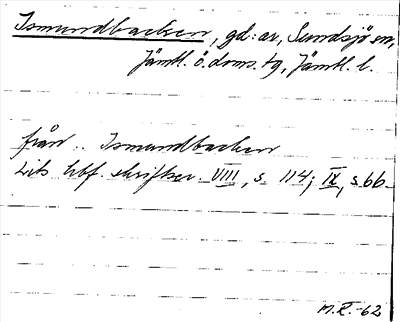 Ismundbacken, gd:ar, Sundsjö sn,
Jämtl. ö. doms. tg, Jämtl. l.
från .. Ismundbacken
Lits hbf. skrifter. VIII, s. 114; IX, s 66.
M.R.-62